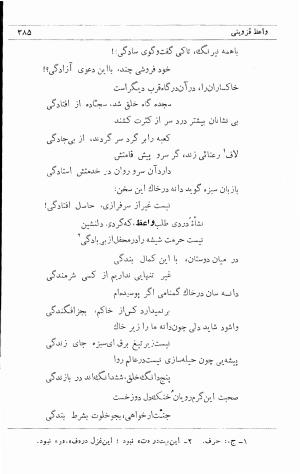 واعظ قزوینی
۳۸۵
باهمه نیرنگ، تاکی گفت‌وگوی سادگی؟!
خود فروشی چند، با این دعوی آزادگی؟!
خاکساران را، در آن درگاه قرب دیگر است
سجده گاه خلق شد، سجّاده از افتادگی
بی نشانان بیشتر درد سر از کثرت کشند
کعبه را بر گرد سر گردند، از بی‌جادگی
لاف رعنائی زند، گر سرو پیش قامتش
دارد آن سرو روان در خدمتش استادگی
با زبان سبزه گوید دانه در خاك این سخن:
نیست غیر از سرفرازی، حاصل افتادگی!
نشأه دردی طلب واعظ، که گردی دلنشین
نیست حرمت شیشه را در محفل از بی‌بادگی
در میان دوستان، با این کمال بندگی
غیر تنهایی نداریم از کسی شرمندگی
دانه سان در خاك گمنامی اگر پوسیده‌ام
بر نمیدارد کس از خاکم، بجز افکندگی
واشود شاید دلی چون دانه ما را زیر خاك
نیست زیر تیغ برق ای سبزه جای زندگی
پیشه‌یی چون حیله‌سازی نیست در عالم روا
پنج دانگ خلق، شش دانگ‌اند در بازندگی
صحبت این گرم‌رویان خنك دل دوزخست
جنّت ار خواهی، بجو خلوت بشرط بندگی
۱- ج،: حرف. ۲- این بیت در «ت» نبود ؛ این غزل در «ف»، «ر» نبود.